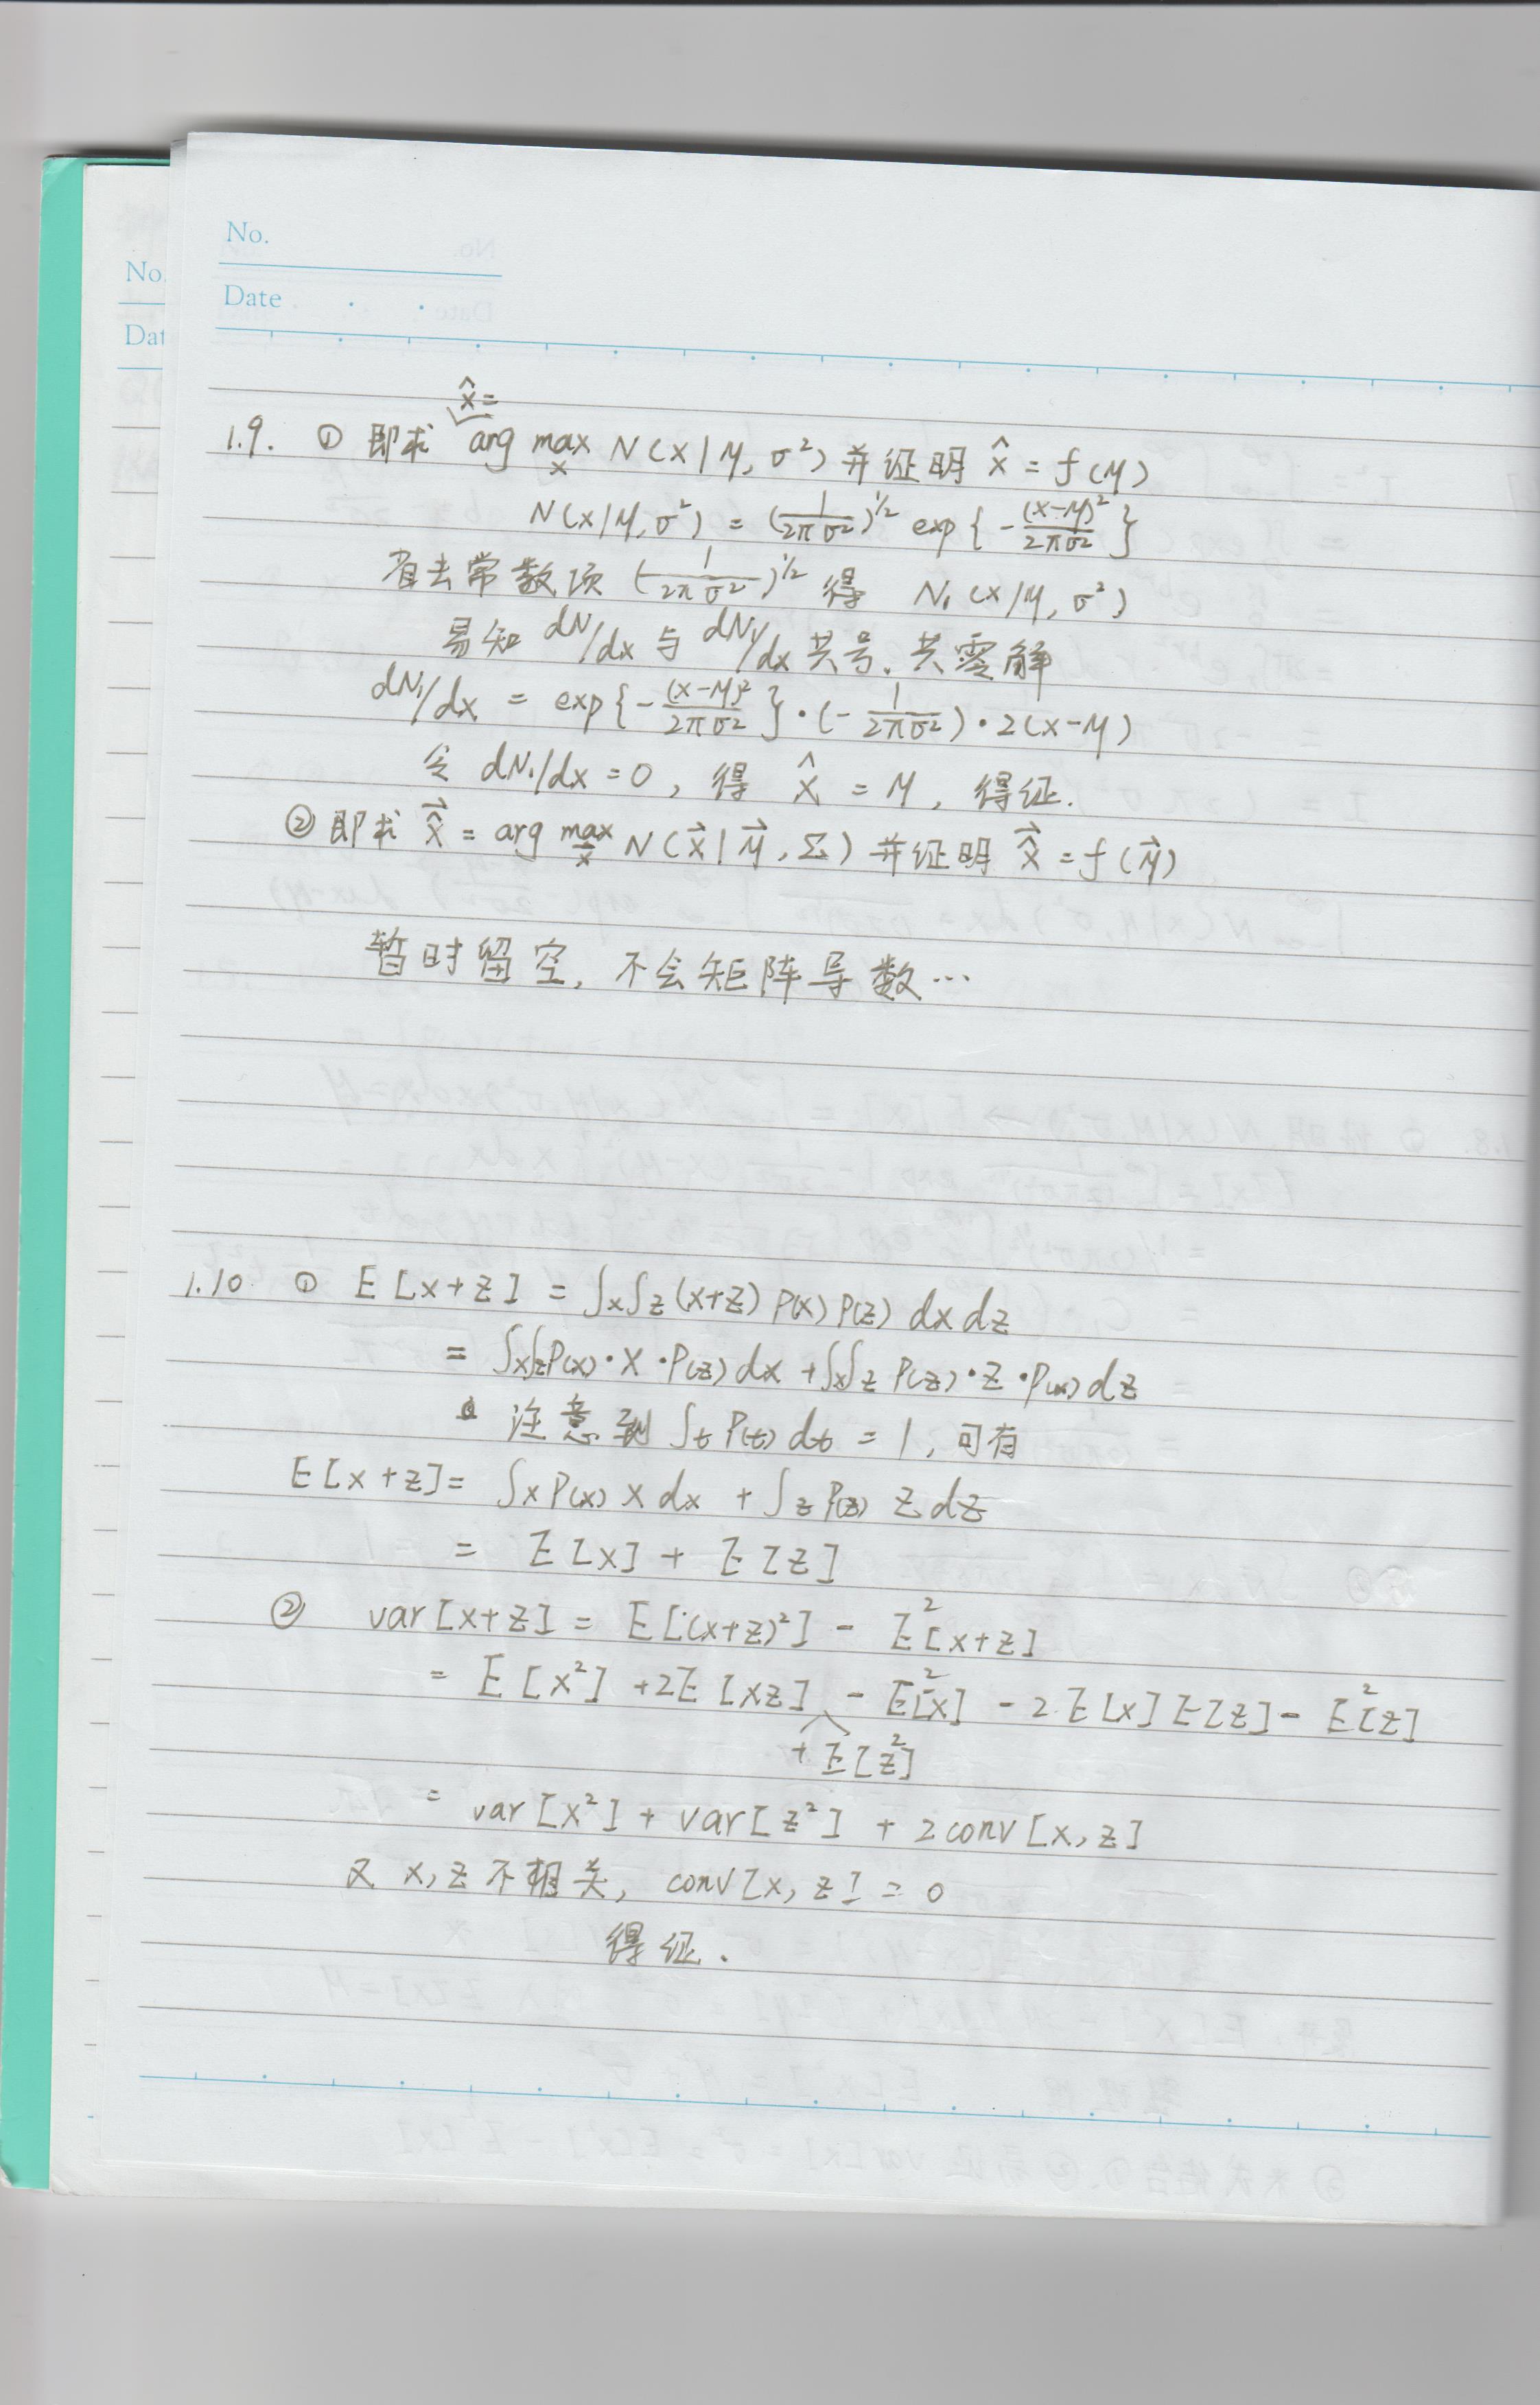 No.
Date
No.
Dat
x̂ =
1.9. ① 即求 arg max_x N(x|μ, σ²) 并证明 x̂ = f(μ)
N(x|μ, σ²) = (1/2πσ²)^1/2 exp{-(x-μ)²/2πσ²}
省去常数项 (1/2πσ²)^1/2 得 N₁(x|μ, σ²)
易知 dN/dx 与 dN₁/dx 共号、共零解
dN₁/dx = exp{-(x-μ)²/2πσ²}·(-1/2πσ²)·2(x-μ)
令 dN₁/dx = 0, 得 x̂ = μ, 得证.
② 即求 x̂⃗ = arg max_x⃗ N(x⃗|μ⃗, Σ) 并证明 x̂⃗ = f(μ⃗)
暂时留空, 不会矩阵导数…
1.10. ① E[x+z] = ∫x∫z (x+z) P(x) P(z) dx dz
= ∫x∫z P(x)·x·P(z) dx + ∫x∫z P(z)·z·P(x) dz
注意到 ∫t P(t) dt = 1, 可有
E[x+z] = ∫x P(x) x dx + ∫z P(z) z dz
= E[x] + E[z]
② var[x+z] = E[(x+z)²] - E²[x+z]
= E[x²] + 2E[xz] - E²[x] - 2E[x]E[z] - E²[z]
+ E[z²]
= var[x²] + var[z²] + 2conv[x, z]
又 x, z 不相关, conv[x, z] = 0
得证.